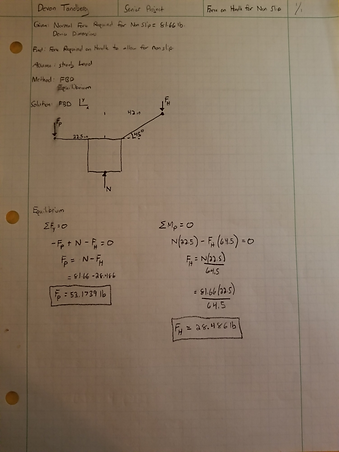 Devon Tansberg Senior Project Force on Handle for Non Slip 1/1
Given: Normal Force Required for Non Slip = 81.66 lb
Dimensions
Find: Force Required on Handle to allow for non slip
Assume: steady level
Method: FBD
Equilibrium
Solution: FBD
F_H
42in
F_P
22.5in
45°
N
Equilibrium
ΣF_y = 0
-F_P + N - F_H = 0
F_P = N - F_H
= 81.66 - 28.486
F_P = 53.1739 lb
ΣM_P = 0
N(22.5) - F_H(64.5) = 0
F_H = N(22.5)
64.5
= 81.66(22.5)
64.5
F_H = 28.486 lb